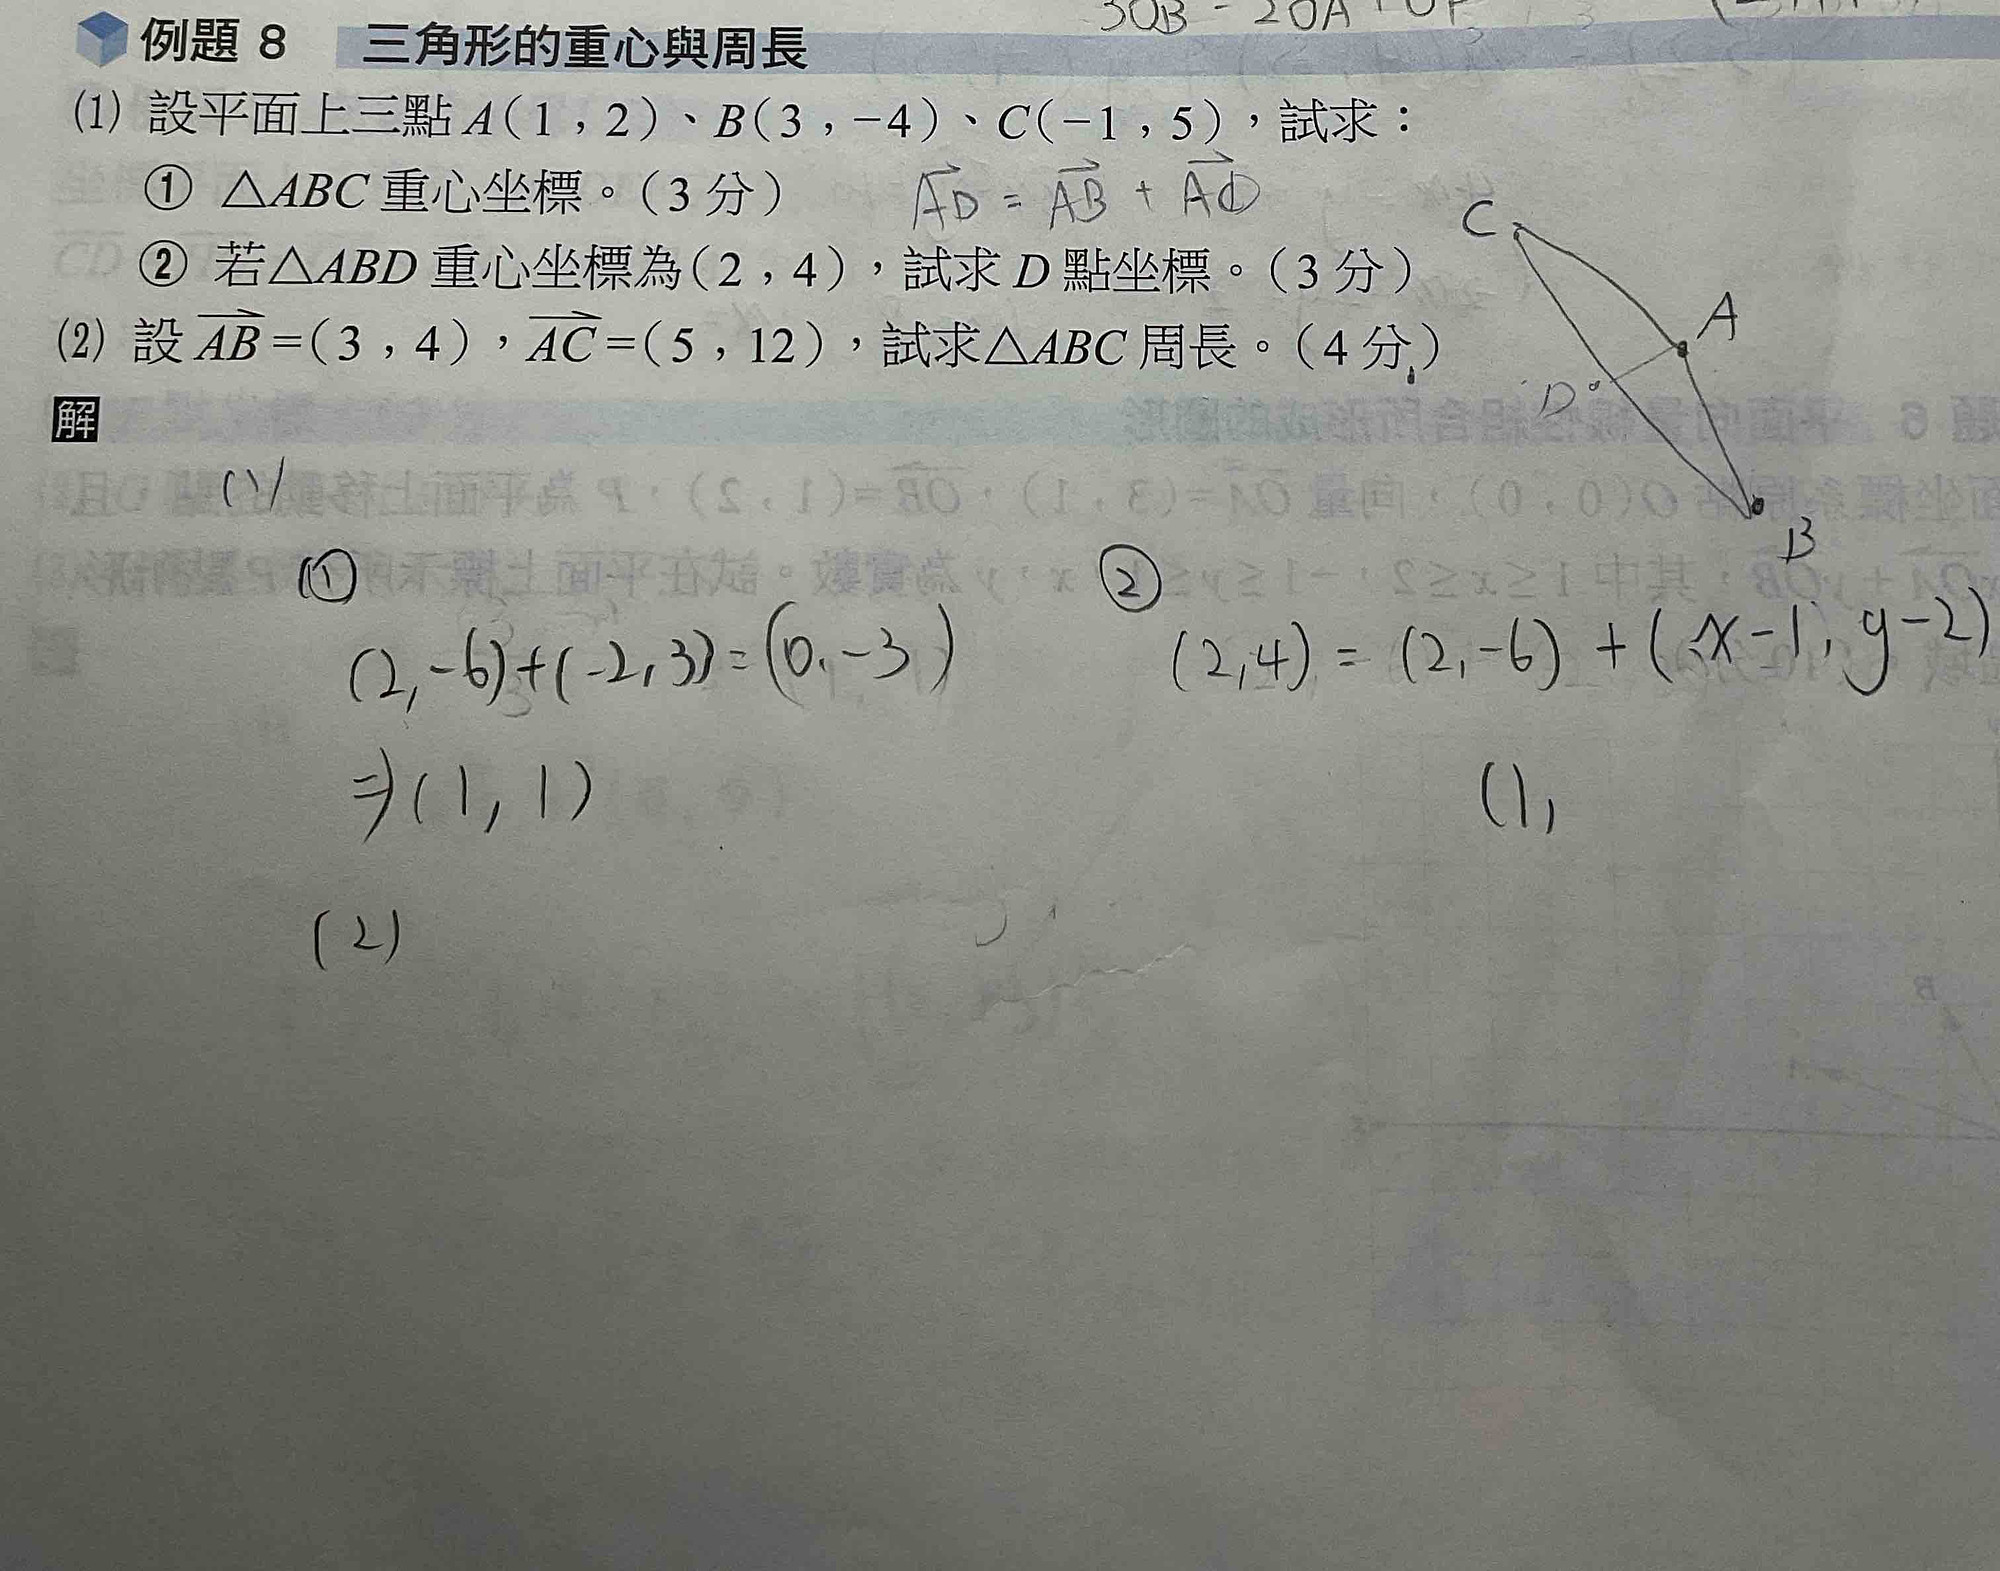 3OB - 2OA + OP
例題 8 三角形的重心與周長
(1) 設平面上三點 A(1,2)、B(3,-4)、C(-1,5),試求:
① △ABC 重心坐標。(3 分)
AD = AB + AC
② 若△ABD 重心坐標為(2,4),試求 D 點坐標。(3 分)
(2) 設 AB=(3,4),AC=(5,12),試求△ABC 周長。(4 分)
C
A
D
B
解
(1)
①
(2,-6)+(-2,3)=(0,-3)
⇒(1,1)
②
(2,4) = (2,-6) + (x-1, y-2)
(1,
(2)